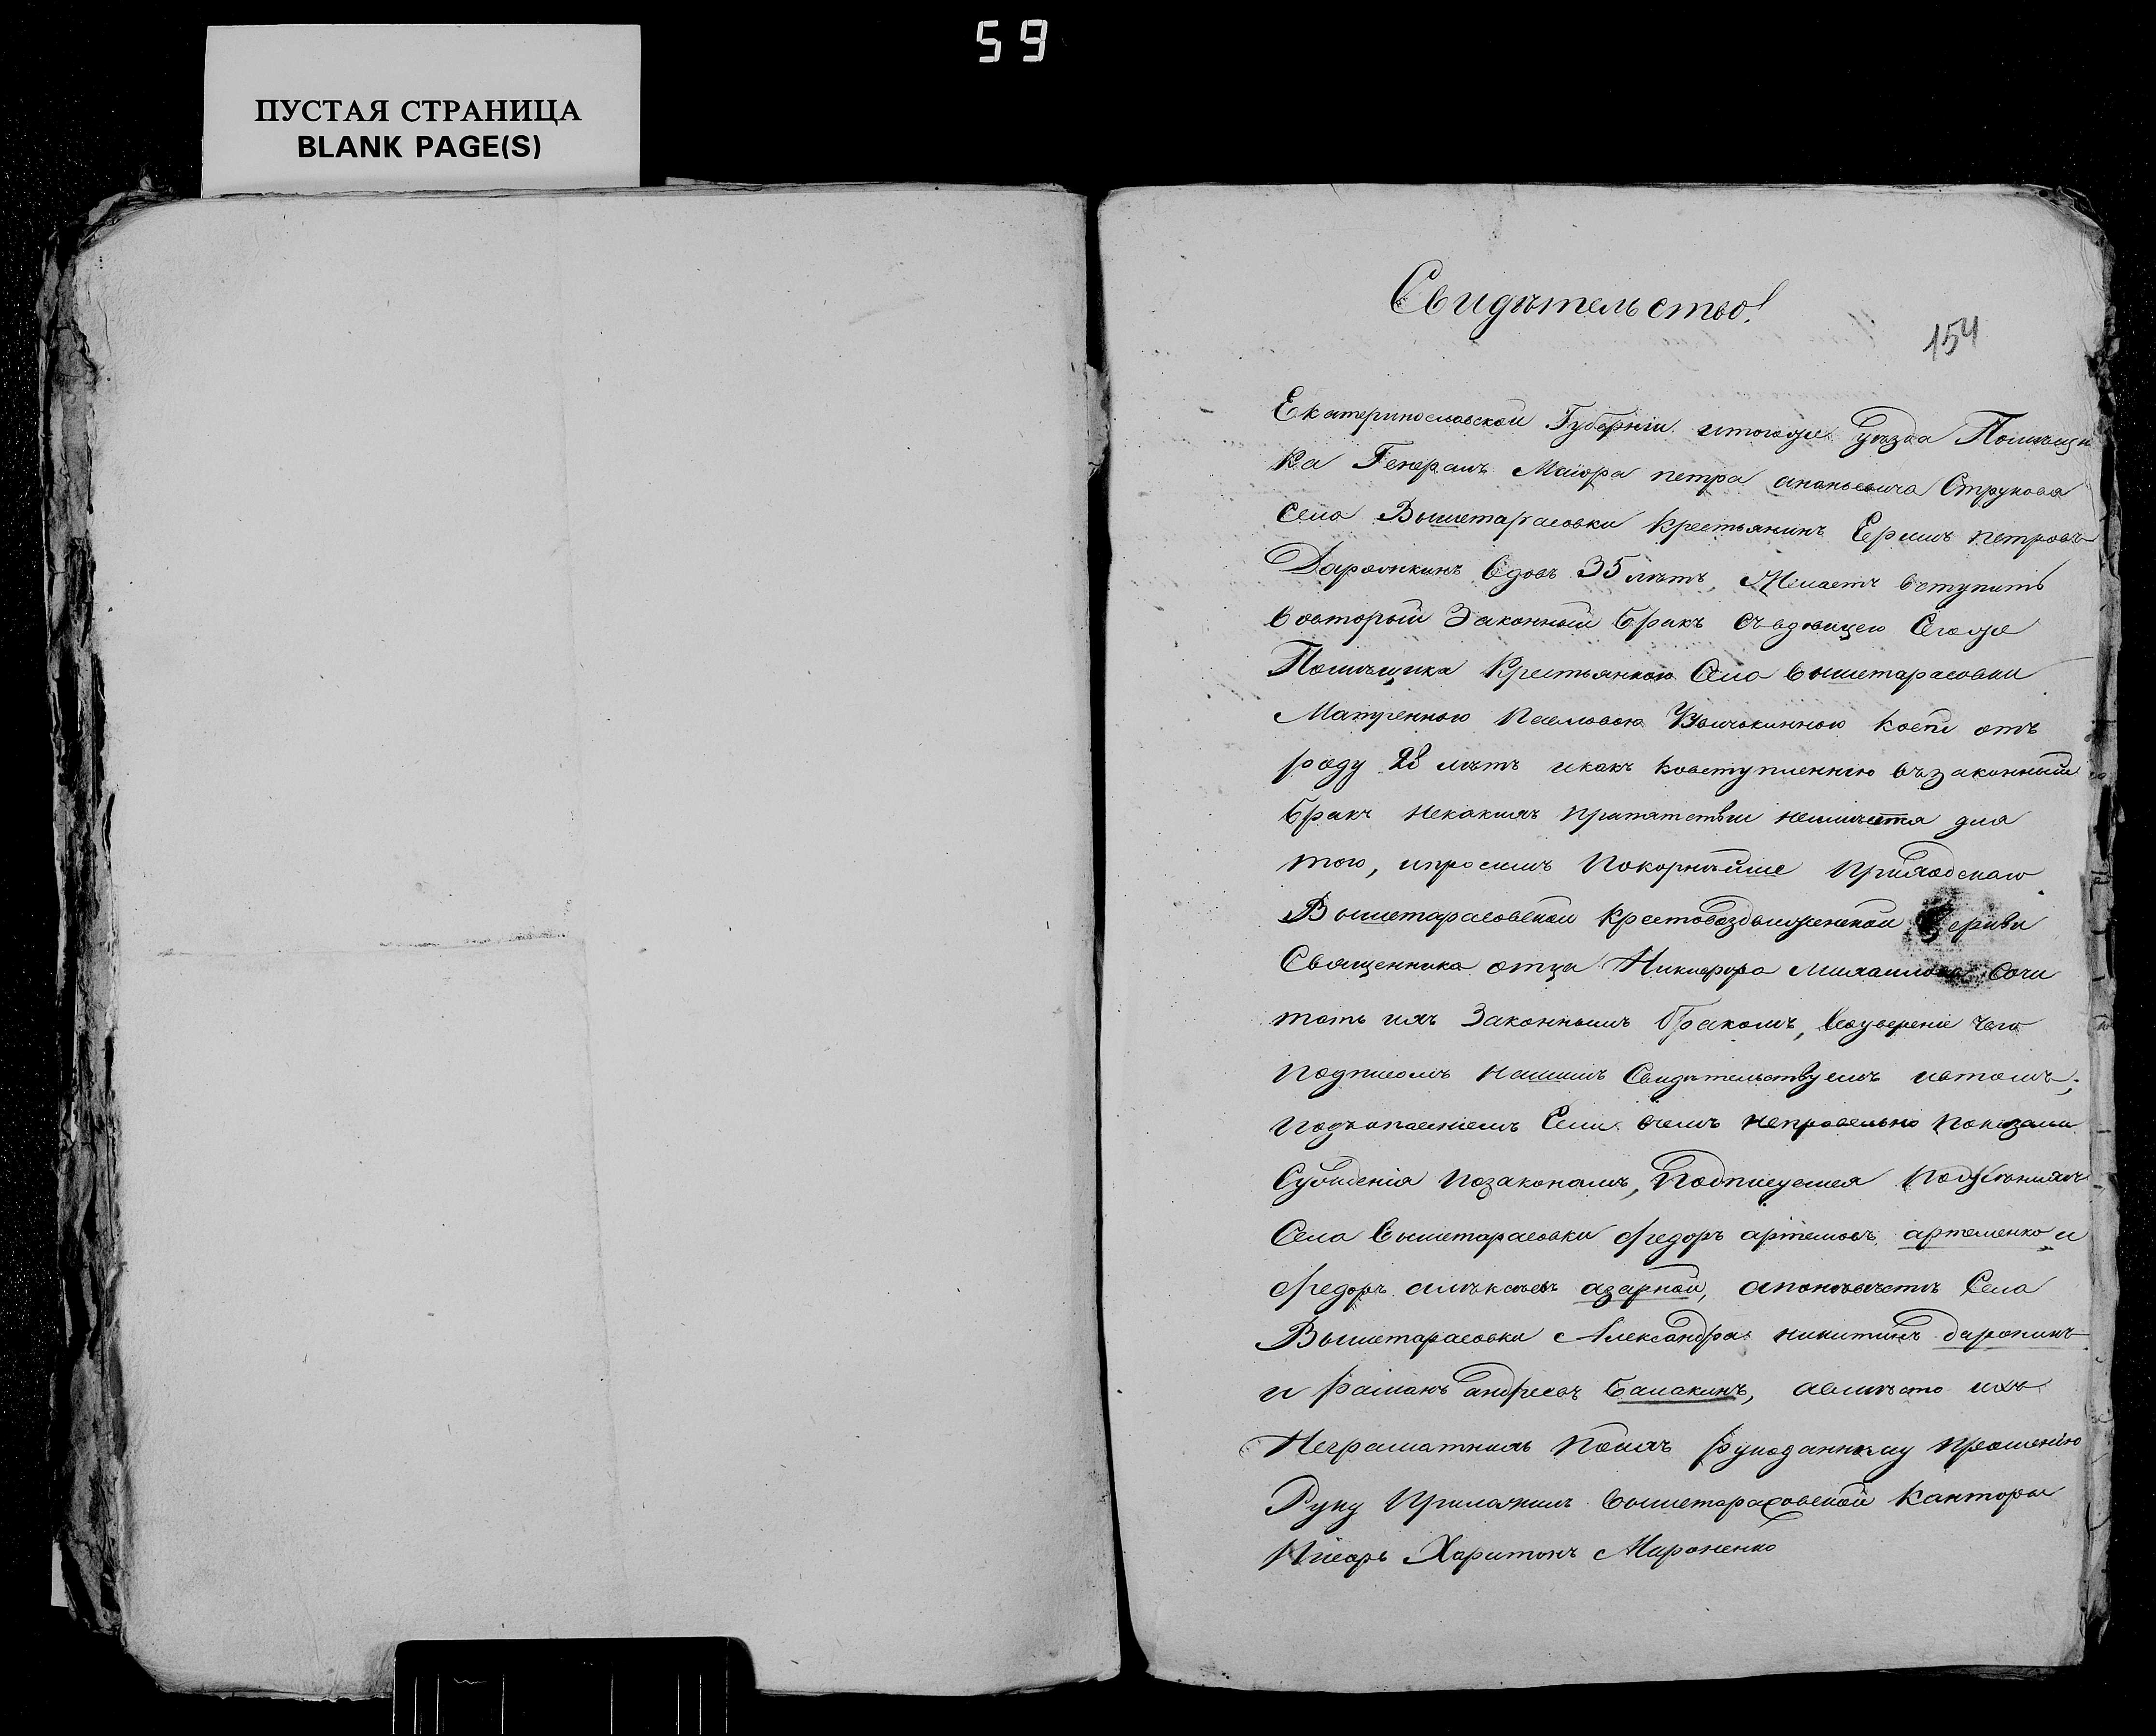 59
ПУСТАЯ СТРАНИЦА
BLANK PAGE(S)
Свидѣтельство!
154
Екатеринославской Губерніи итогоже Уѣзда Помѣщи
ка Генералъ Маіора петра ананьевича Струкова
села Вышетарасовки крестьянинъ Ермилъ петровъ
вдовъ 35 лѣтъ, Желаетъ вступить
вовторый Законный бракъ съвдовицею Сегоже
Помѣщика Крестьянкою Села вышетарасовки
Матренною Павловою коей отъ
роду 28 лѣтъ икакъ ковступленнію възаконный
бракъ некакихъ притятствии неимѣется для
того, ипросимъ Покорнѣйше Приходскаго
Вышетарасовской крестовоздвиженской Церкви
Священника отца Никифора Михаилова Сочи
тать ихъ Законнымъ бракомъ, воуверение чего
подписомъ нашимъ Свидѣтельствуемъ ивтомъ;
подъопасениемъ Если вчемъ неправельно показали
Сужденія позаконамъ, Подписуемся
Села вышетарасовки Федоръ артемовъ артеменко и
Федоръ алѣксѣевъ азарной, апонѣвѣстѣ Села
Вышетарасовки Александра никитинъ даронинъ
и раманъ андреевъ балакинъ, авмѣсто ихъ
Неграматнихъ Поихъ рукоданному прошению
Руку Приложилъ вышетарасовской канторы
Писарь Харитонъ Мироненко